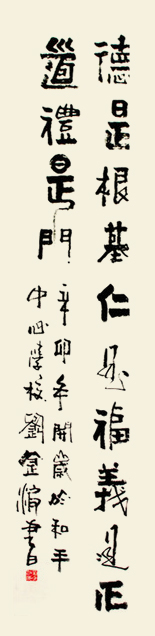 德是根基仁是福義是正
道禮是門
辛卯年開歲於和平
中心學校劉奎㵾書